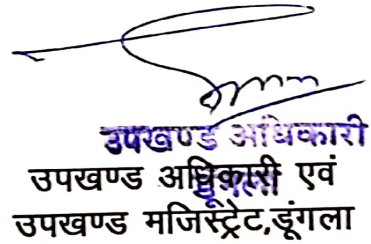 उपखण्ड अधिकारी
डूंगला
उपखण्ड अधिकारी एवं
उपखण्ड मजिस्ट्रेट,डूंगला